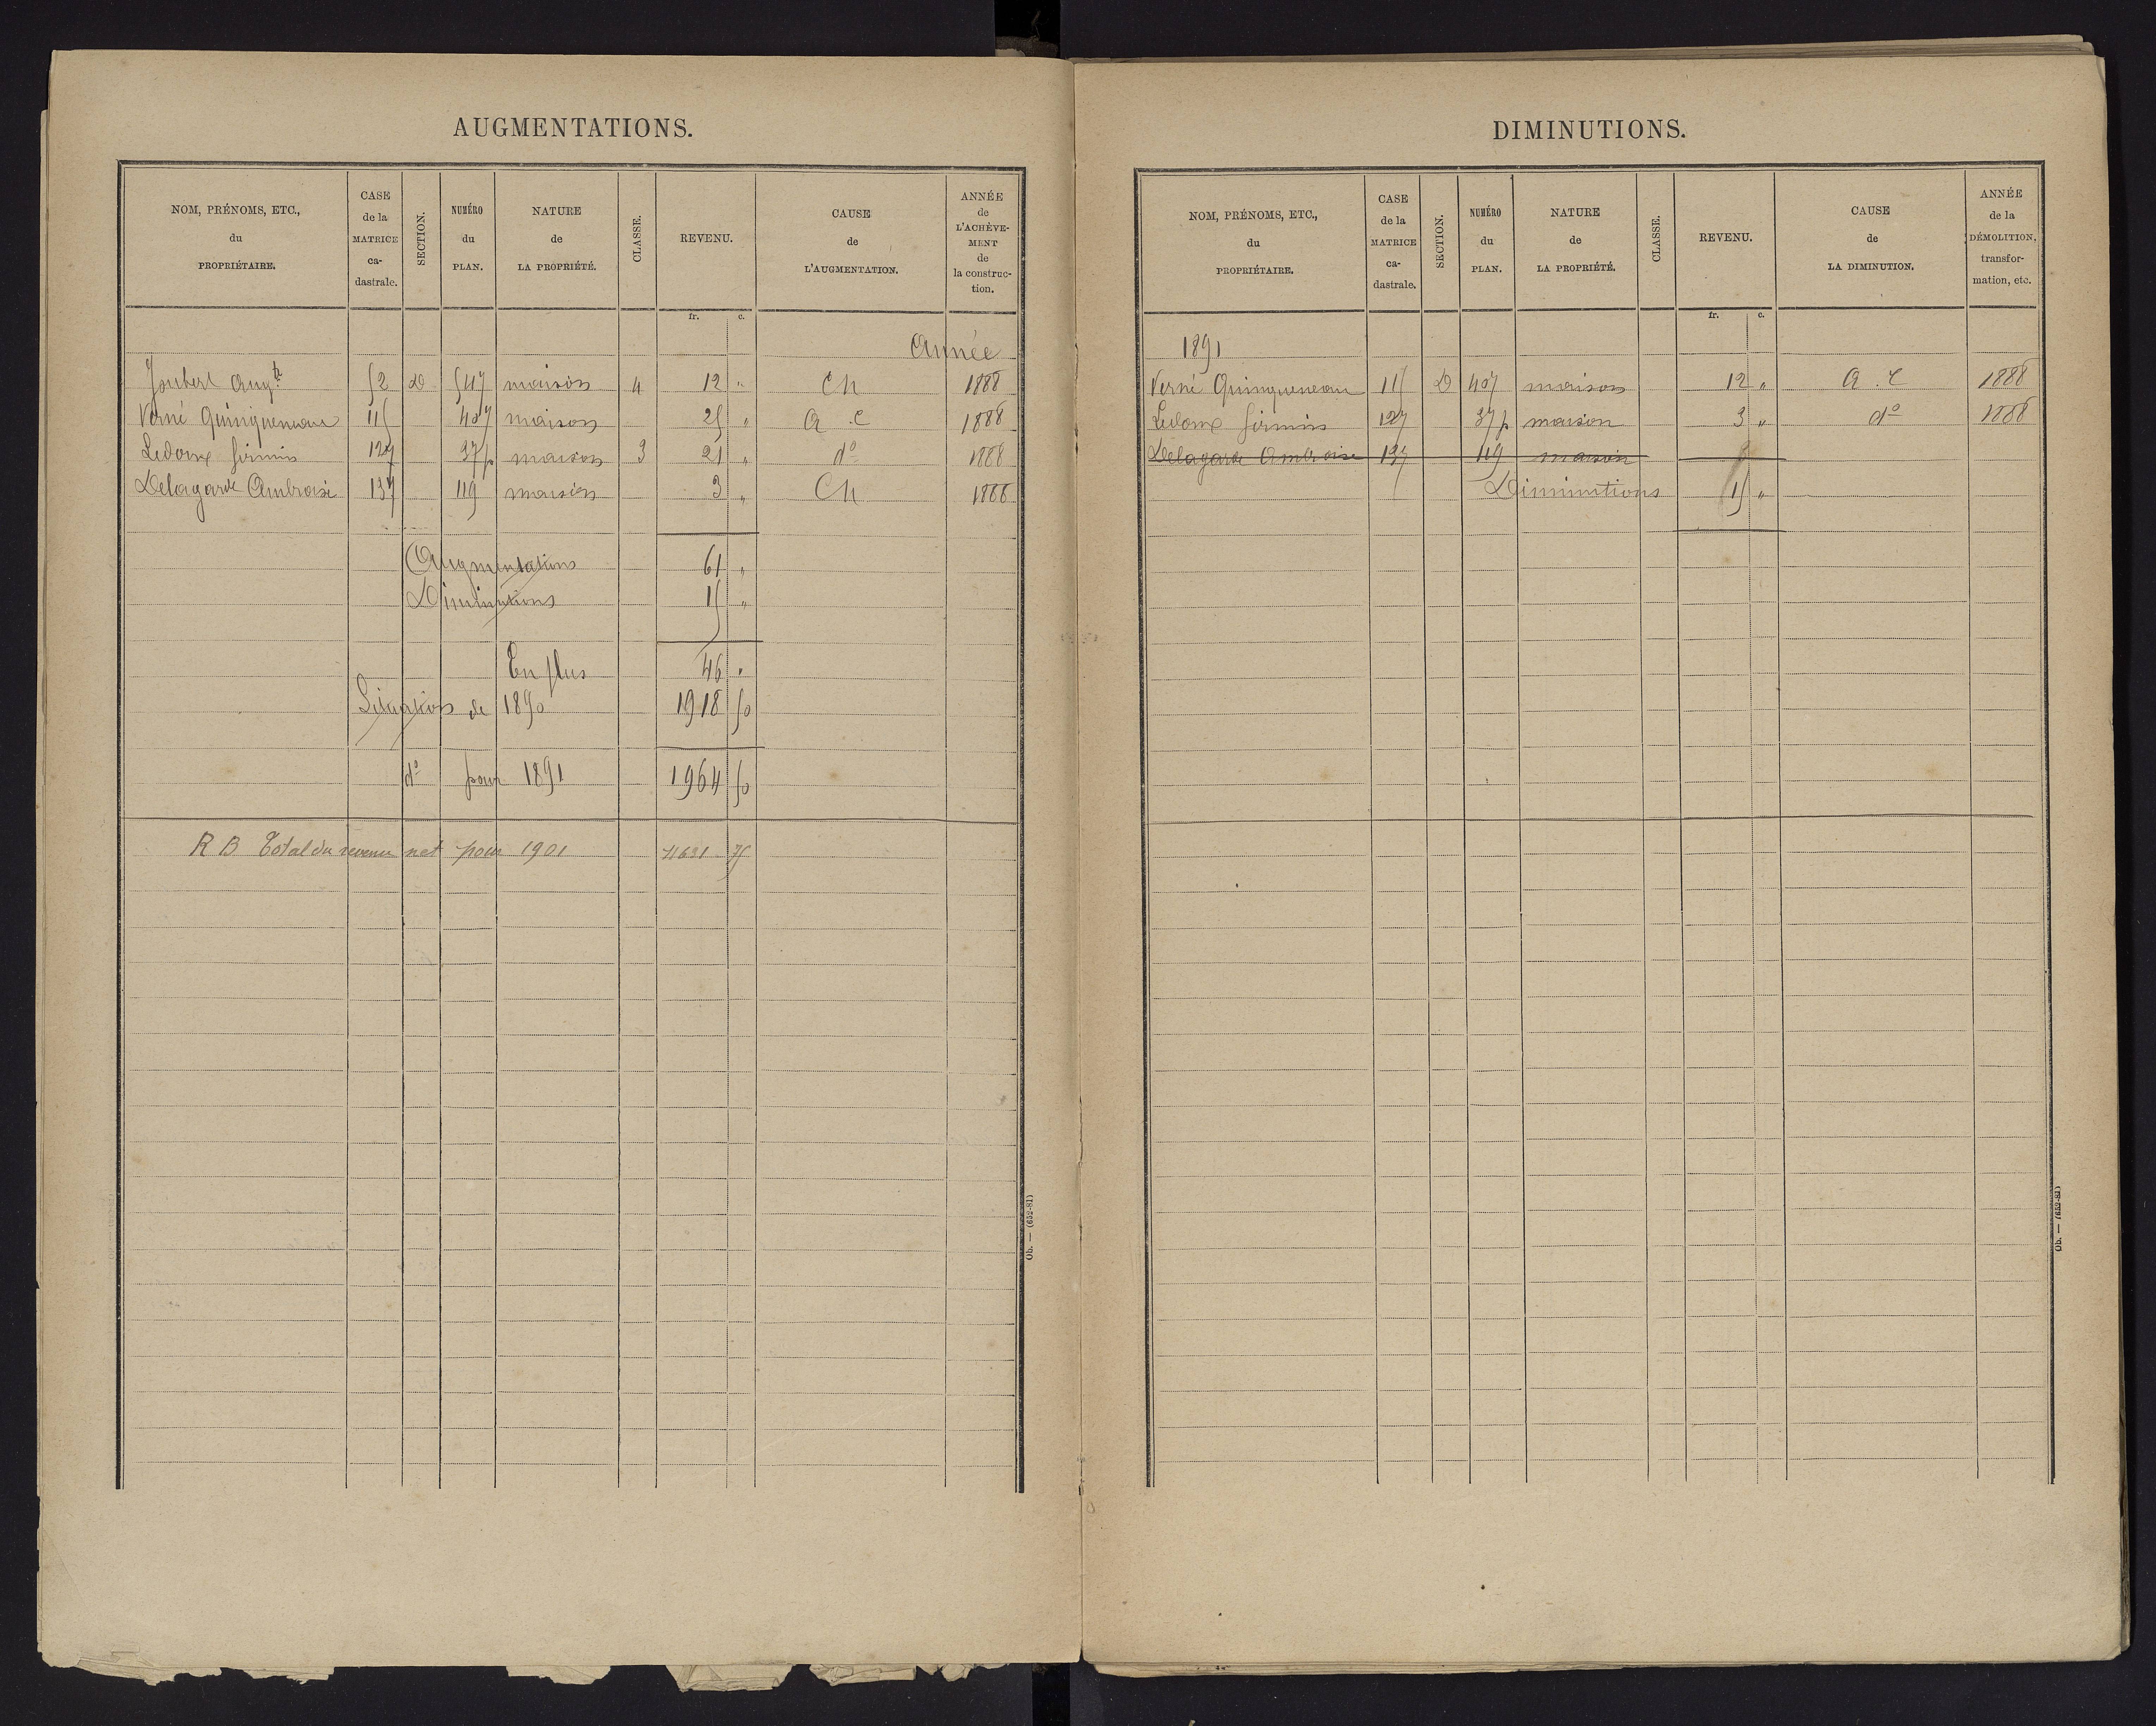 AUGMENTATIONS.
NOM, PRÉNOMS, ETC., du PROPRIÉTAIRE. CASE de la MATRICE ca-dastrale. SECTION. NUMÉRO du PLAN. NATURE de LA PROPRIÉTÉ. CLASSE. REVENU. CAUSE de L'AUGMENTATION. ANNÉE de L'ACHÈVE-MENT de la construc-tion.
fr. c.
Année
Joubert Aug.te 52 D 547 maison 4 12 " Ch 1888
Verné Quinqueneau 115 407 maison 25 " A.C 1888
Ledoux firmin 127 37p maison 3 21 " do 1888
Delagarde Ambroise 137 119 maison 3 " Ch 1888
Augmentations 61 "
Diminutions 15 "
En plus 46 "
Situation de 1890 1918 50
do pour 1891 1964 50
R B Total du revenu net pour 1901 75
Ob. — (652-81)
DIMINUTIONS.
NOM, PRÉNOMS, ETC., du PROPRIÉTAIRE. CASE de la MATRICE ca-dastrale. SECTION. NUMÉRO du PLAN. NATURE de LA PROPRIÉTÉ. CLASSE. REVENU. CAUSE de LA DIMINUTION. ANNÉE de la DÉMOLITION, transfor-mation, etc.
fr. c.
1891
Verné Quinqueneau 115 D 407 maison 12 " A.C 1888
Ledoux firmin 127 37p maison 3 " do 1888
Delagarde Ambroise 137 119 maison
Diminutions 15 "
Ob. — (652-81)